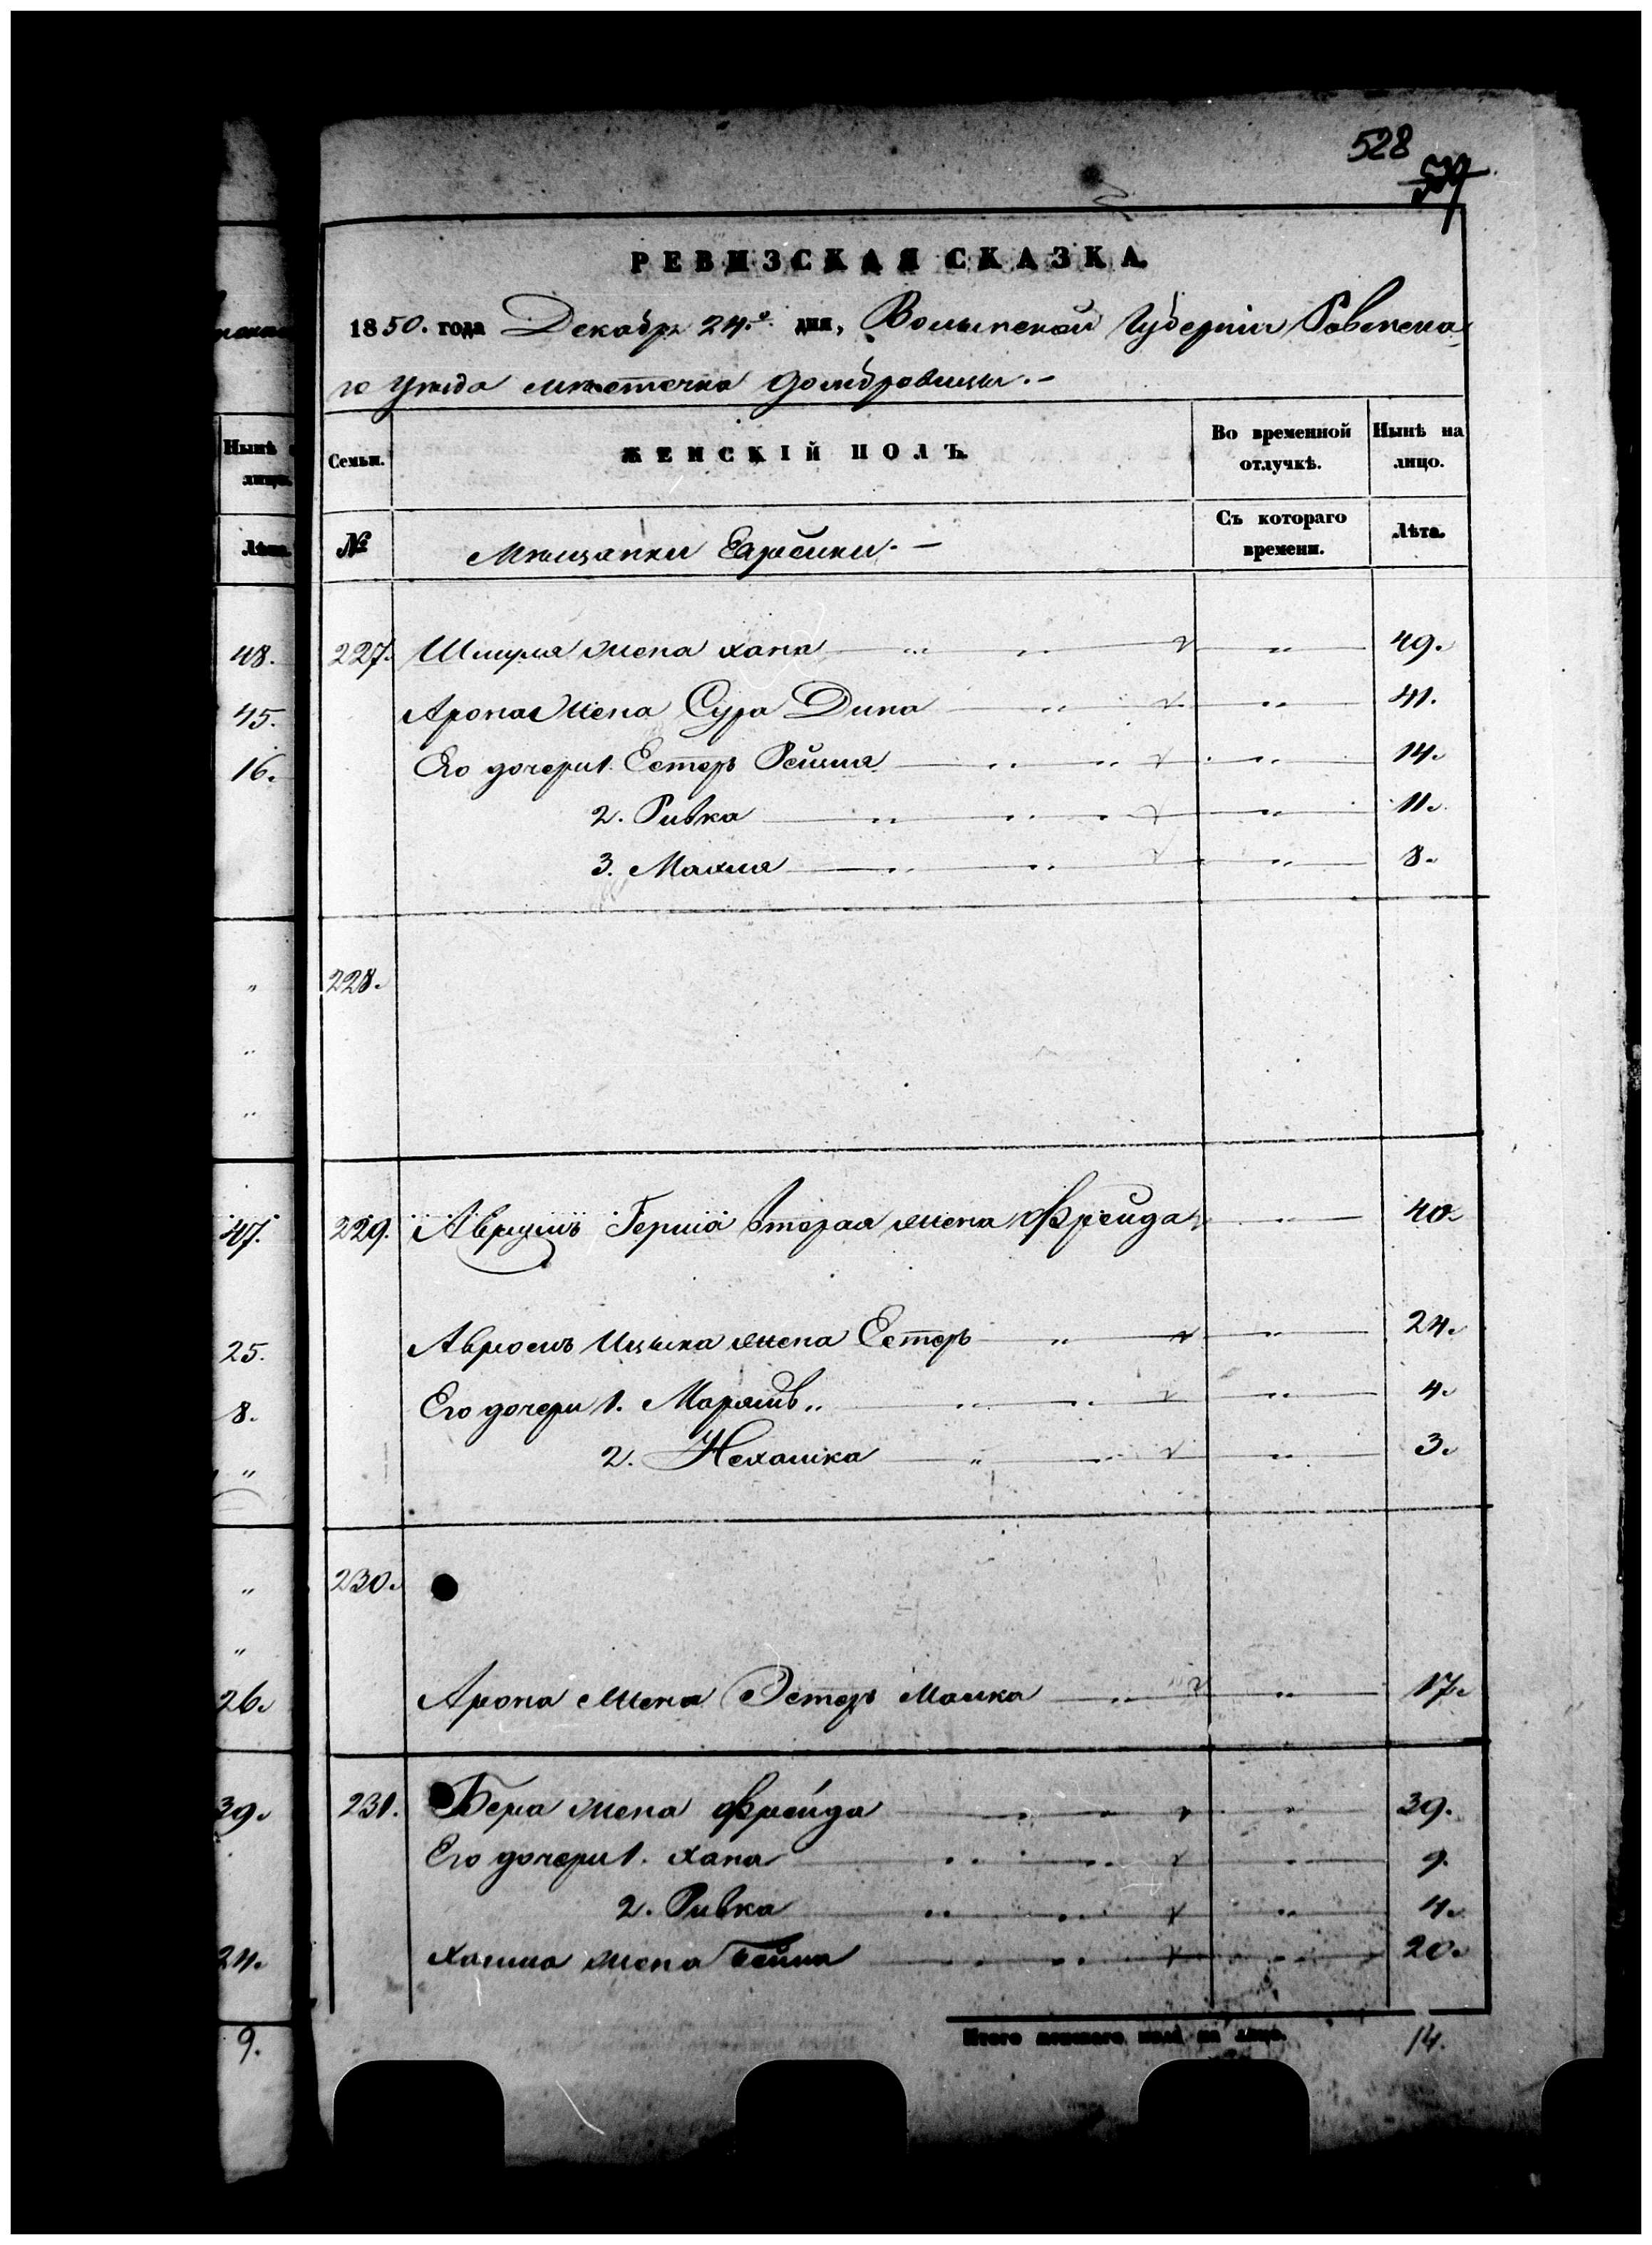 528
РЕВИЗСКАЯ СКАЗКА.
1850. года Декабр. 24.го дня, Волынской Губерніи Ровенска-
го Уѣзда мѣстечка Домбровицы.-
Нынѣ
лицо.
Семьи.
ЖЕНСКІЙ ПОЛЪ.
Во временной
отлучкѣ.
Нынѣ на
лицо.
Лѣта.
№
Мѣщанки Еврейки.-
Съ котораго
времени.
Лѣта.
48. 227. Шмуля жена хана 49.
45. Арона жена Сура Дина 41.
16. Его дочери 1. Естеръ Рейзля 14.
2. Ривка 11.
3. Махля 8.
228.
47. 229. Аврумъ Герша вторая жена Фрейда 40.
25. Авромъ Ицька жена Естеръ 24.
8. Его дочери 1. Марямъ 4.
2. Нехамка 3.
230.
26. Арона жена Эстеръ Малка 17.
39. 231. Бера жена Фрейда 39.
Его дочери 1. хана 9.
2. Ривка 4.
24. жена Бейла 20.
9. Итого женскаго пола на лицо. 14.